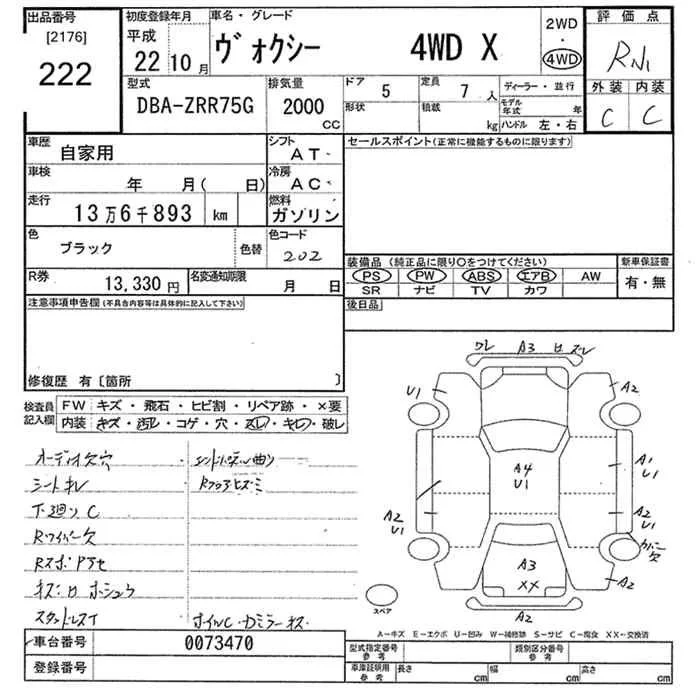 出品番号
[2176]
222
初度登録年月
平成
22 10 月
車名・グレード
ヴォクシー 4WD X
2WD
・
4WD
評価点
外装 内装
C C
型式
DBA-ZRR75G
排気量
2000
CC
ドア 5
定員 7 人
ディーラー・並行
形状
積載 kg
モデル年式 年
ハンドル 左・右
車歴 自家用
シフト AT
車検 年 月( 日)
冷房 AC
走行 13万6千893 km
燃料 ガソリン
色 ブラック
色替
色コード 202
R券 13,330 円
名変通知期限 月 日
セールスポイント(正常に機能するものに限ります)
装備品 (純正品に限り○をつけてください)
新車保証書
PS PW ABS エアB AW
SR ナビ TV カワ
有・無
後日品
注意事項申告欄(不具合内容等は具体的に記入して下さい)
修復歴 有〔箇所 〕
検査員記入欄
FW キズ・飛石・ヒビ割・リペア跡・×要
内装 キズ・汚れ・コゲ・穴・スレ・キレ・破レ
オーディオ欠穴
シートキレ
下廻りC
Rワイパー欠
スタッドレス
A3
U1
A2
A1
U1
A4
U1
A2
U1
A2
U1
カバー欠
A3
XX
A2
A2
スペア
A－キズ E－エクボ U－凹み W－補修跡 S－サビ C－腐食 XX－交換済
車台番号 0073470
登録番号
型式指定番号 参考
類別区分番号 参考
車庫証明用 参考
長さ cm
幅 cm
高さ cm